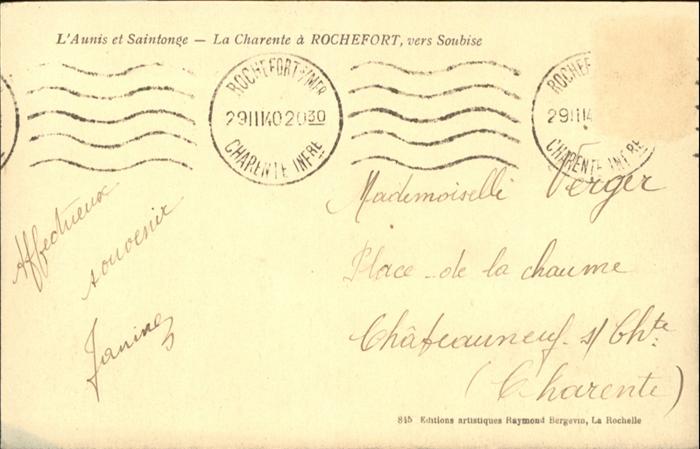 L'Aunis et Saintonge — La Charente à ROCHEFORT, vers Soubise
ROCHEFORT S/MER
29 II 40 20 30
CHARENTE INFRE
ROCHEF
29 II 4
CHARENTE INFRE
Affectueux
souvenir
Janine
Mademoiselle Verger
Place de la chaume
Châteauneuf s/ Chte
(Charente)
845 Editions artistiques Raymond Bergevin, La Rochelle